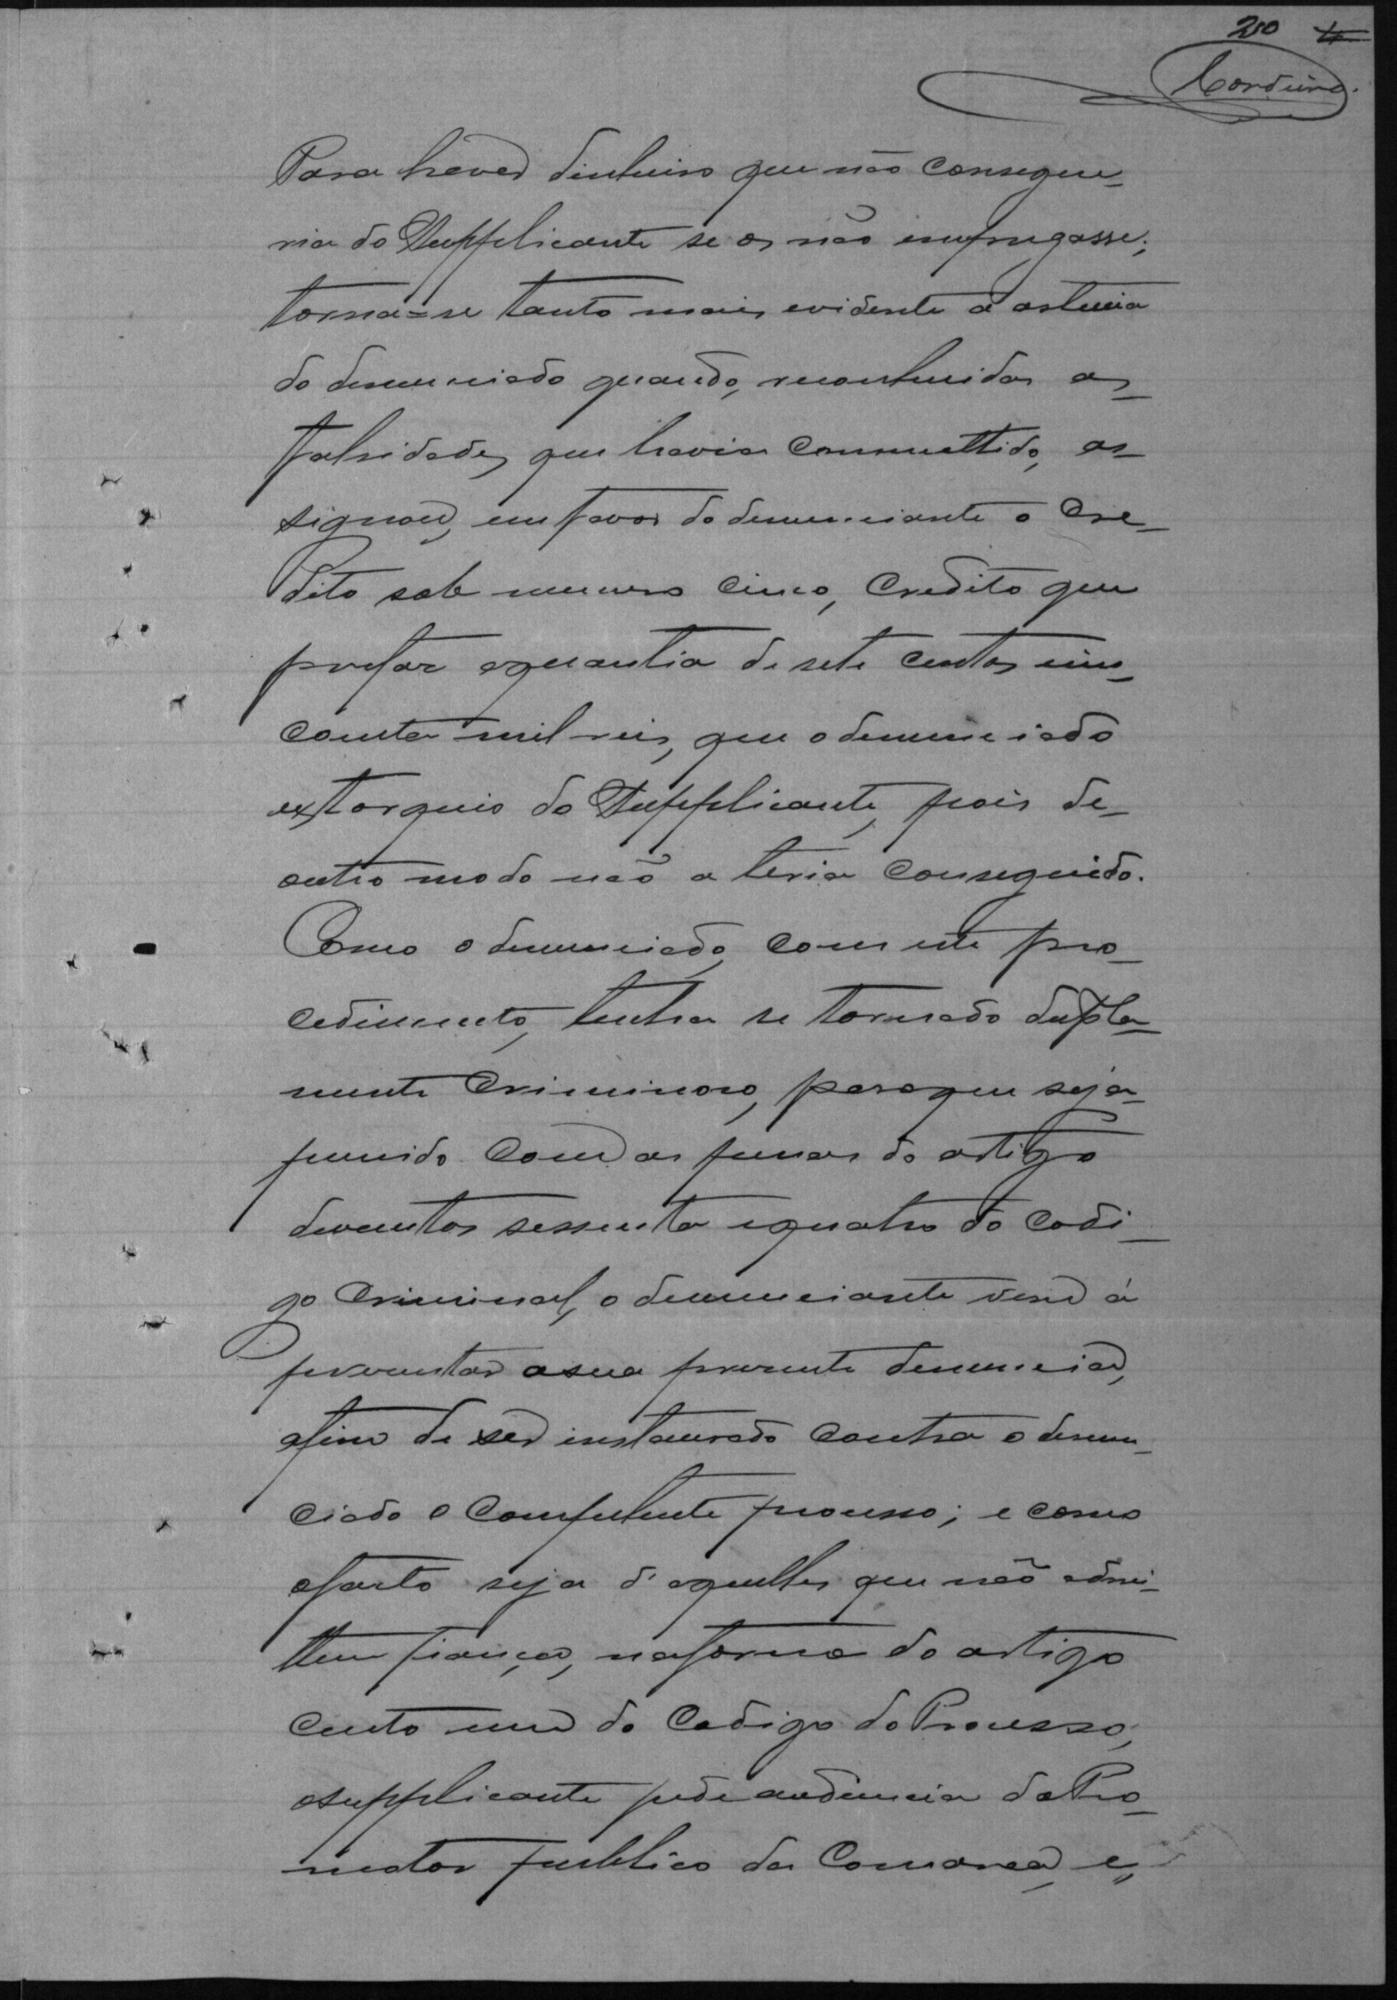 210 4
Cordeiro.
Para haver dinheiro que não consegue-
ria do Supplicante se os não empregasse;
torna-se tanto mais evidente a astucia
do denunciado quando, reconhecidas as
falsidades que havia commettido, as-
signou, em favor do denunciante o cre-
dito sob numero cinco, credito que
prefaz a quantia de sete centos cin-
coenta mil reis, que o denunciado
extorquio do Supplicante, pois de-
outro modo não a teria conseguido.
Como o denunciado, com este pro-
cedimento, tenha se tornado dupla-
mente criminoso, para que seja
punido com as penas do artigo
duzentos sessenta e quatro do Codi-
go Criminal, o denunciante vem á
presentar a sua presente denuncia,
afim de ser instaurado contra o denun-
ciado o competente processo; e como
o facto seja d'aquelles que não admi-
ttem fiança, na forma do artigo
cento um do Codigo do Processo,
o supplicante pede audiencia do Pro-
motor publico da Comarca, e,,